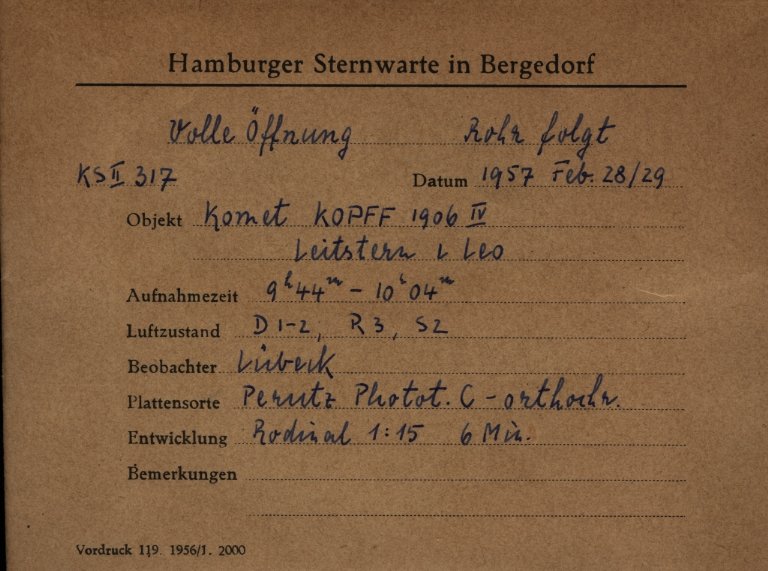 Hamburger Sternwarte in Bergedorf
Volle Öffnung Rohr folgt
KS II 317 Datum 1957 Feb. 28/29
Objekt Komet KOPFF 1906 IV
Leitstern ι Leo
Aufnahmezeit 9ʰ44ᵐ – 10ʰ04ᵐ
Luftzustand D 1-2, R 3, S 2
Beobachter Lübeck
Plattensorte Perutz Photot. C - orthochr.
Entwicklung Rodinal 1:15 6 Min.
Bemerkungen
Vordruck 119. 1956/1. 2000